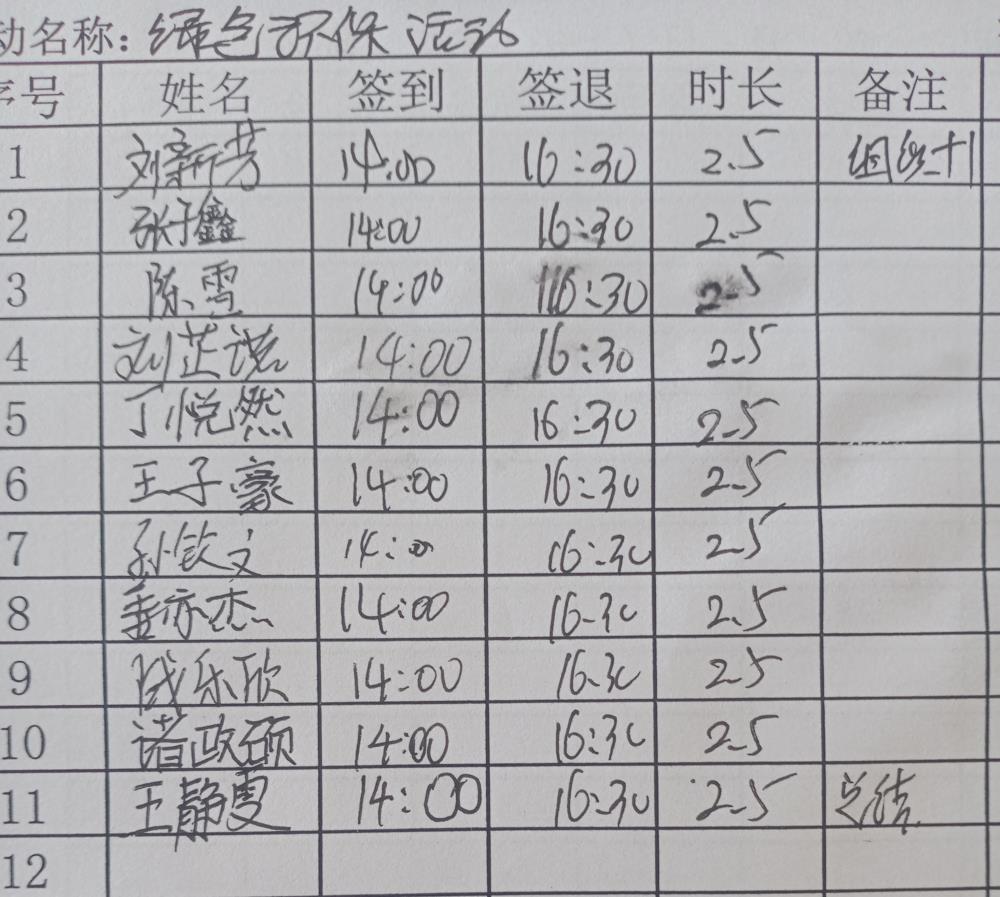 动名称：绿色环保活动
序号 姓名 签到 签退 时长 备注
1 刘新芳 14:00 16:30 2.5 组织+
2 张子鑫 14:00 16:30 2.5
3 陈雪 14:00 16:30 2.5
4 刘芷诺 14:00 16:30 2.5
5 丁悦然 14:00 16:30 2.5
6 王子豪 14:00 16:30 2.5
7 孙钦文 14:00 16:30 2.5
8 姜亦杰 14:00 16:30 2.5
9 陈乐欣 14:00 16:30 2.5
10 诸政硕 14:00 16:30 2.5
11 王静雯 14:00 16:30 2.5 总结
12